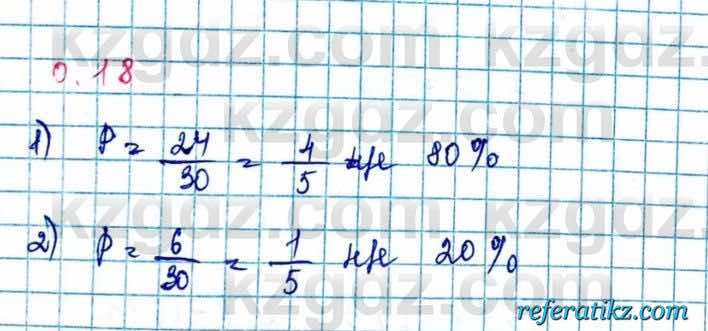 kzgdz.com
0.18
kzgdz.com
1) P = 24/30 = 4/5 не 80%
kzgdz.com
2) P = 6/30 = 1/5 не 20%
kzgdz.com
referatikz.com